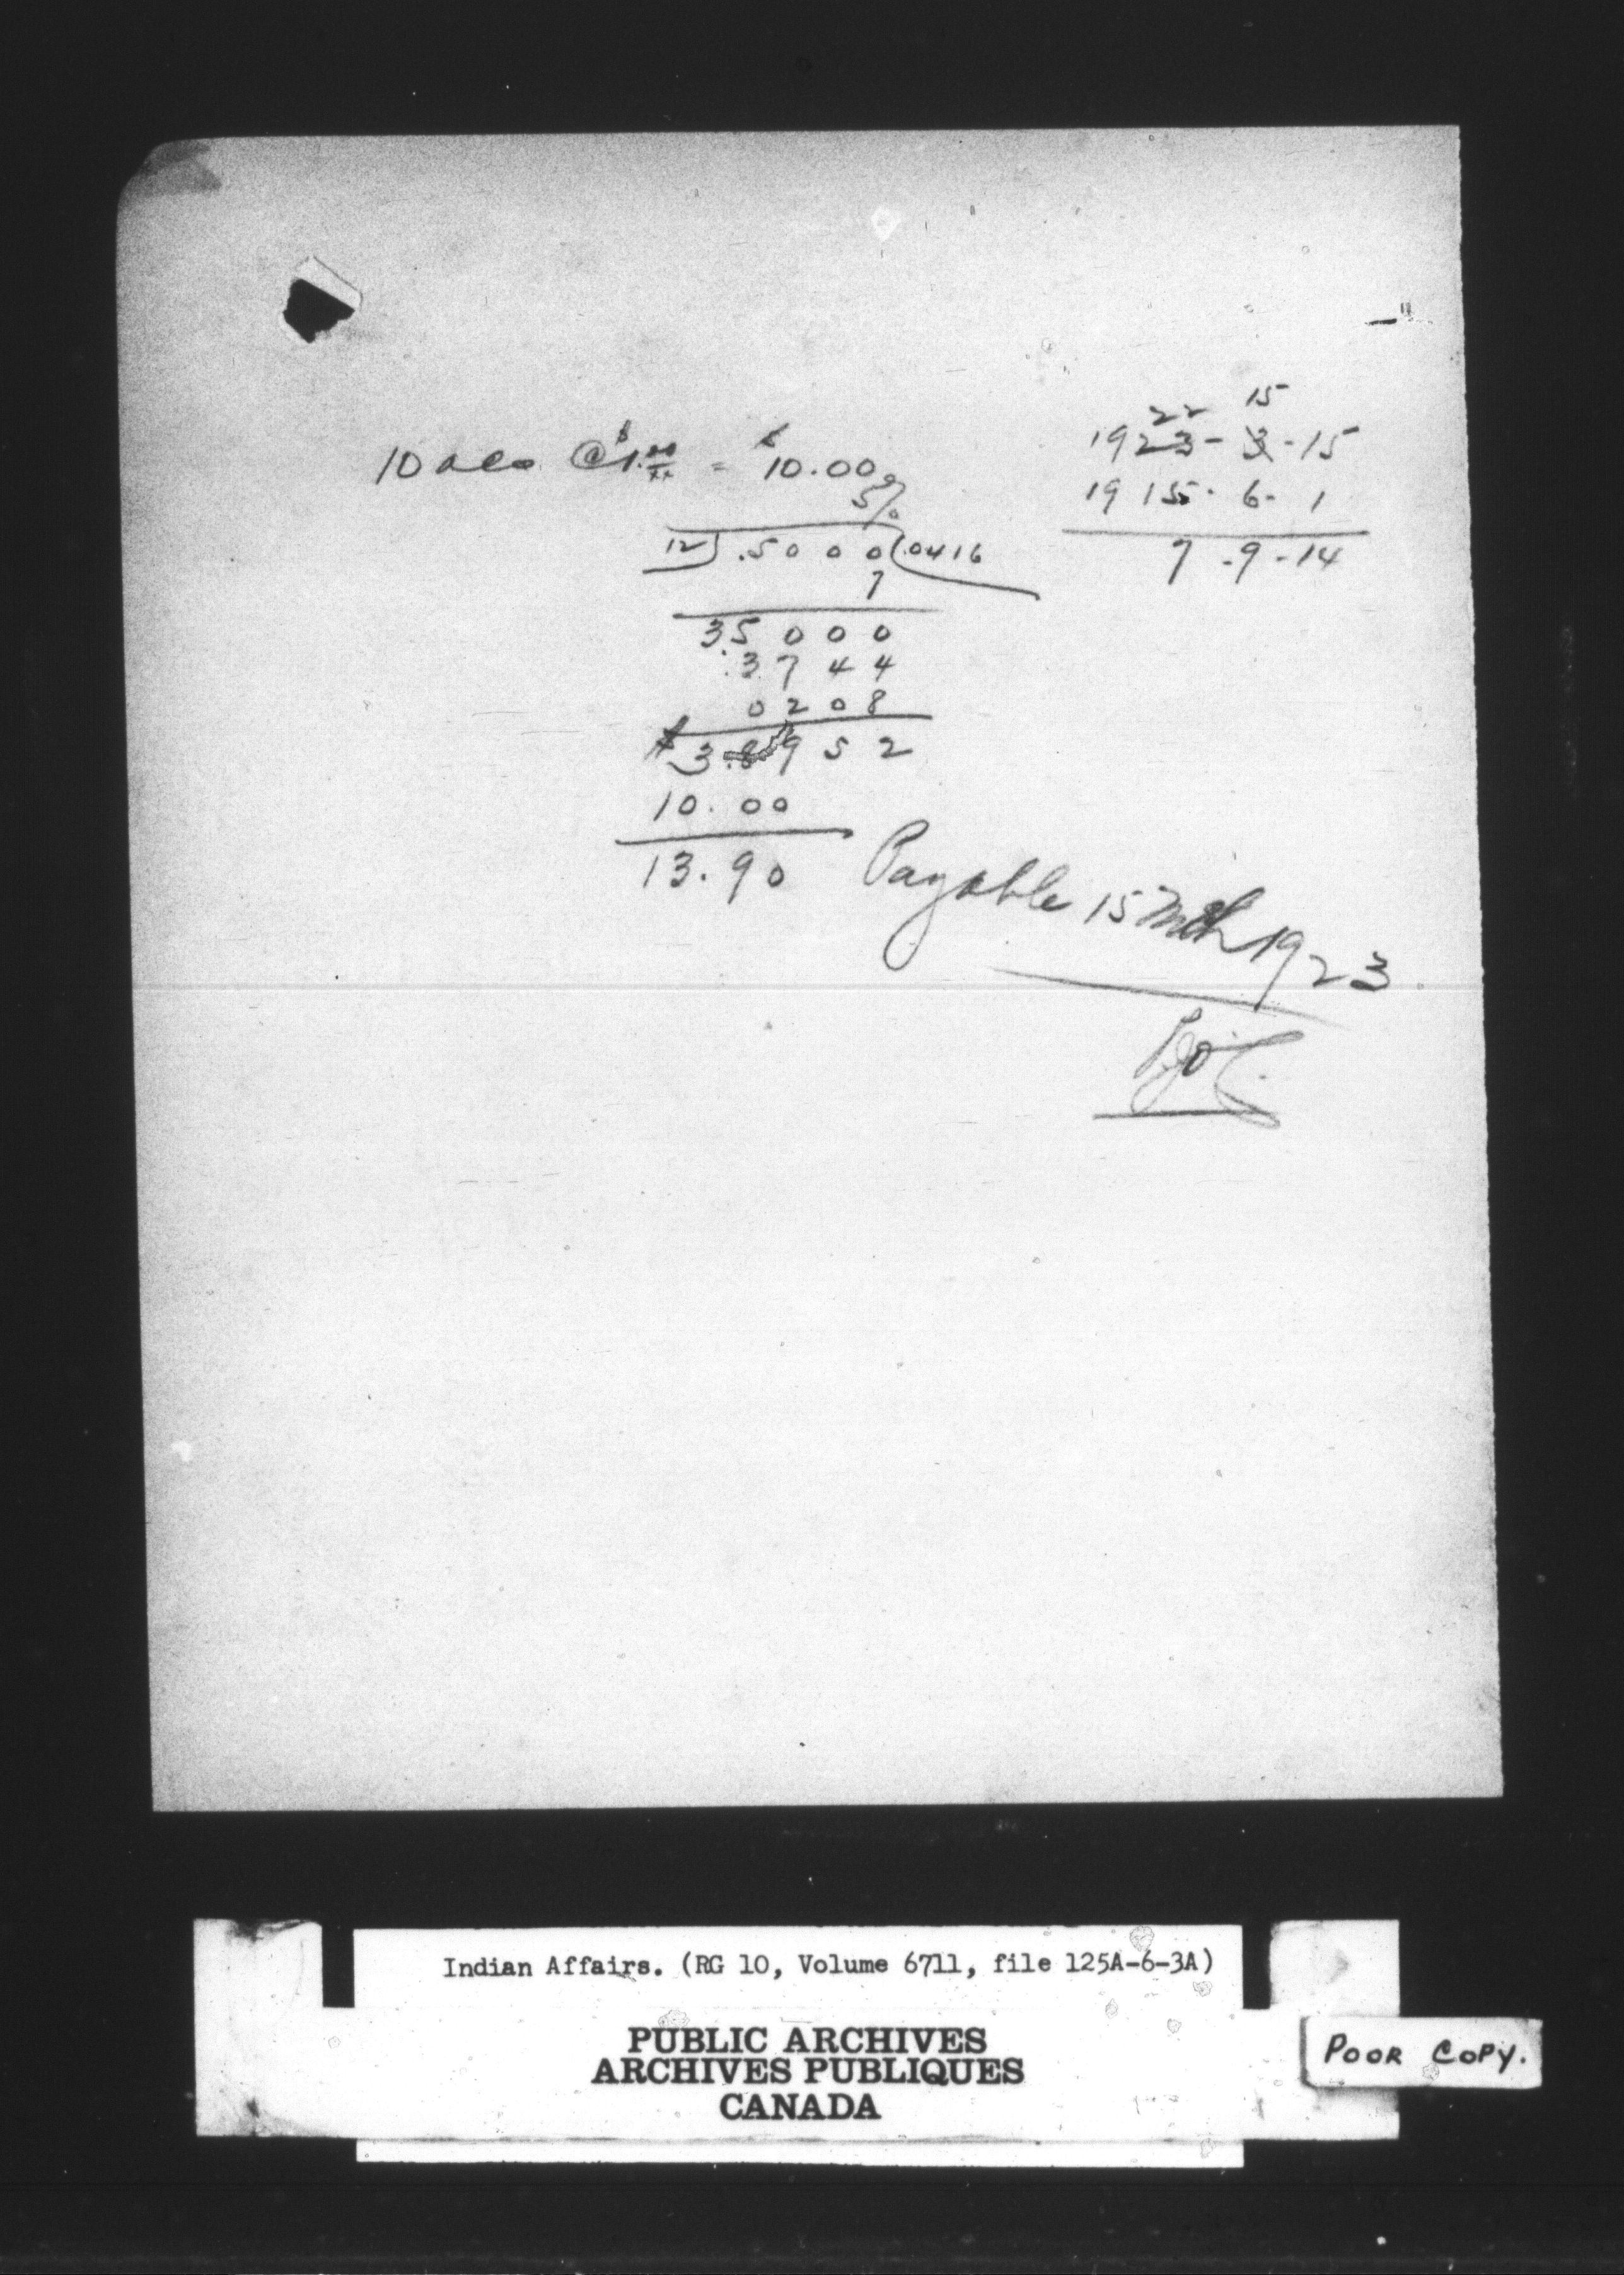 10 acs @ $1.00/xx = $10.00
5%
12).5000(.0416
7
35000
.3744
0208
$3.8952
10.00
13.90 Payable 15 Mch 1923
22 15
1923-3-15
1915-6-1
7-9-14
Indian Affairs. (RG 10, Volume 6711, file 125A-6-3A)
PUBLIC ARCHIVES
ARCHIVES PUBLIQUES
CANADA
POOR COPY.